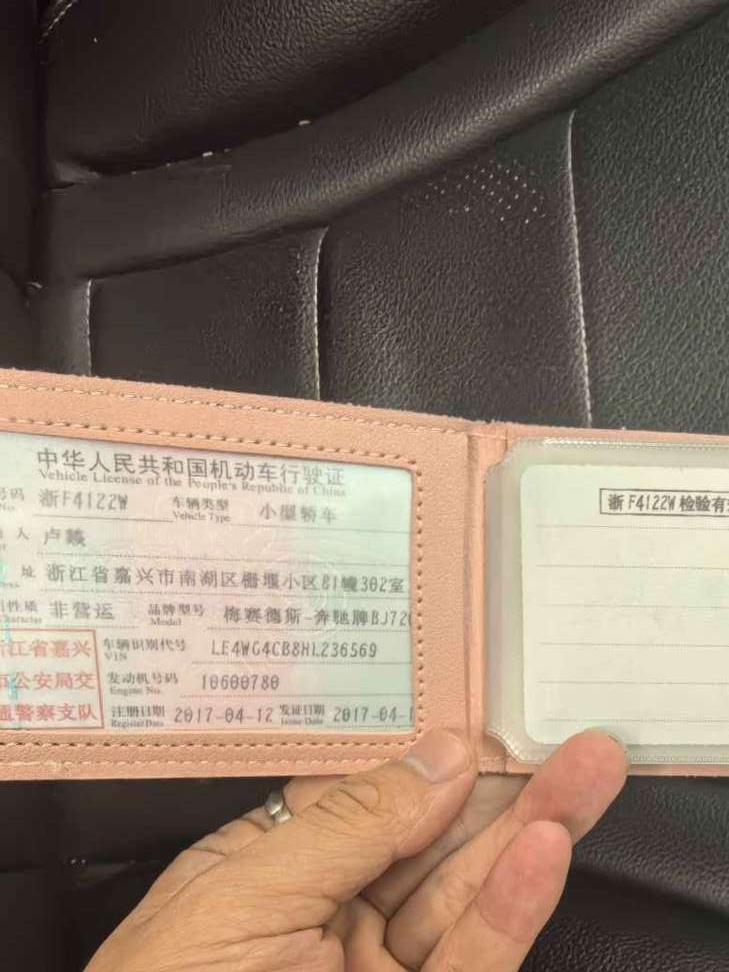 中华人民共和国机动车行驶证
Vehicle License of the People's Republic of China
号码 浙F4122W 车辆类型 小型轿车
No. Vehicle Type
人 卢
址 浙江省嘉兴市南湖区栅堰小区81幢302室
性质 非营运 品牌型号 梅赛德斯-奔驰牌BJ720
Character Model
浙江省嘉兴
市公安局交
通警察支队
车辆识别代号 LE4WG4CB8HL236569
VIN
发动机号码 10600780
Engine No.
注册日期 2017-04-12 发证日期 2017-04-1
Register Date Issue Date
浙F4122W 检验有